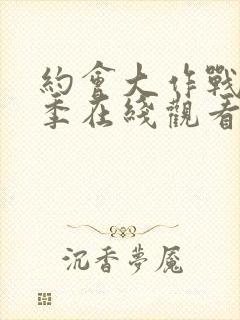 約會大作戰
季在綫觀看
沉香夢魘